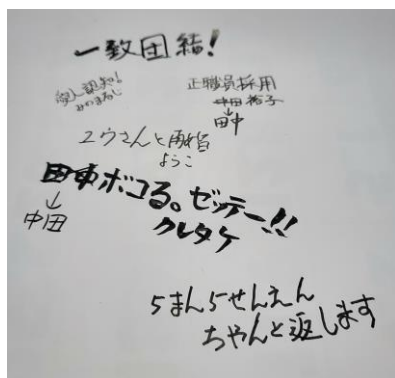 一致団結!
愛人認知!
みのまるし
正職員採用
中田裕子
↓
田中
ユウさんと再婚
ようこ
田中ボコる。ゼッテー!!
↓
中田
クレタケ
5まん5せんえん
ちゃんと返します